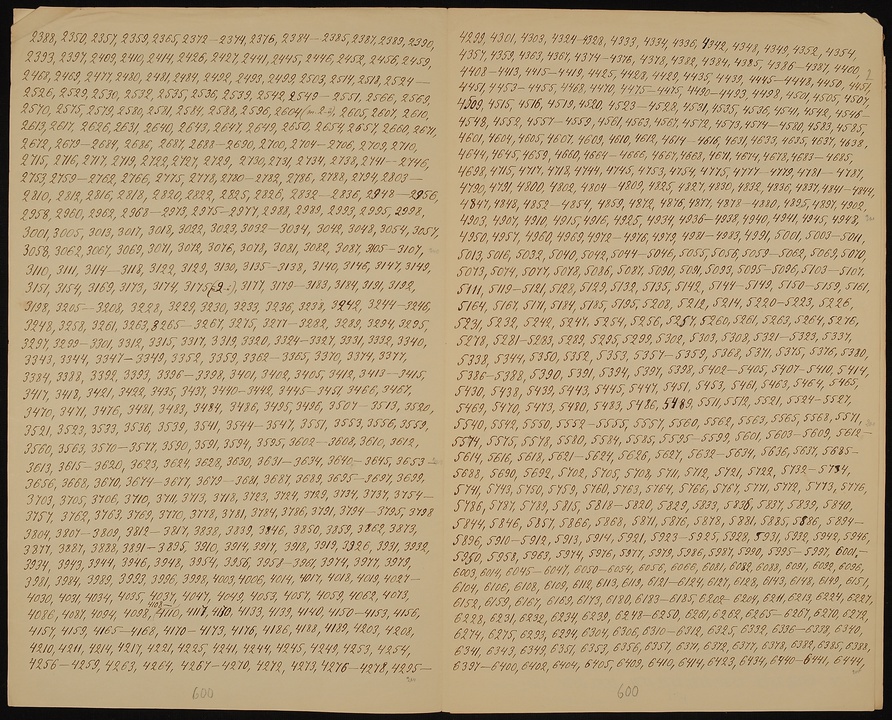 2388, 2350, 2357, 2359, 2365, 2372—2374, 2376, 2384—2385, 2387, 2389, 2390,
2393, 2397, 2409, 2410, 2414, 2426, 2427, 2441, 2445, 2446, 2452, 2456, 2459,
2468, 2469, 2477, 2480, 2481, 2484, 2492, 2493, 2499, 2503, 2517, 2518, 2524—
2526, 2529, 2530, 2532, 2535, 2536, 2539, 2542, 2549—2551, 2566, 2569,
2570, 2575, 2579, 2580, 2581, 2584, 2588, 2596, 2604, 2605, 2607, 2610,
2613, 2617, 2626, 2631, 2640, 2643, 2647, 2649, 2650, 2654, 2657, 2660, 2671,
2672, 2679—2684, 2686, 2687, 2688—2690, 2700, 2704—2706, 2709, 2710,
2715, 2716, 2717, 2719, 2722, 2727, 2729, 2730, 2731, 2734, 2738, 2741—2746,
2753, 2759—2762, 2766, 2775, 2778, 2780—2782, 2786, 2788, 2794, 2803—
2810, 2812, 2816, 2818, 2820, 2822, 2825, 2826, 2832—2836, 2948—2956,
2958, 2960, 2962, 2968—2973, 2975—2977, 2988, 2989, 2993, 2995, 2998,
3001, 3005, 3013, 3017, 3018, 3022, 3023, 3032—3034, 3042, 3048, 3054, 3057,
3058, 3062, 3067, 3069, 3071, 3072, 3076, 3078, 3081, 3082, 3087, 3105—3107,
3110, 3111, 3114—3118, 3122, 3129, 3130, 3135—3138, 3140, 3146, 3147, 3149,
3151, 3154, 3169, 3173, 3174, 3175, 3177, 3179—3183, 3184, 3191, 3192,
3198, 3205—3208, 3228, 3229, 3230, 3233, 3236, 3238, 3242, 3244—3246,
3248, 3258, 3261, 3263, 3265—3267, 3275, 3277—3282, 3289, 3294, 3295,
3297, 3299—3301, 3312, 3315, 3317, 3319, 3320, 3324—3327, 3331, 3332, 3340,
3343, 3344, 3347—3349, 3352, 3359, 3362—3365, 3370, 3374, 3377,
3384, 3388, 3392, 3393, 3396—3398, 3401, 3402, 3405, 3412, 3413—3415,
3417, 3418, 3421, 3428, 3435, 3437, 3440—3442, 3445—3451, 3466, 3467,
3470, 3471, 3476, 3481, 3483, 3484, 3486, 3495, 3496, 3507—3513, 3520,
3521, 3523, 3533, 3536, 3539, 3541, 3544—3547, 3551, 3553, 3556, 3559,
3560, 3563, 3570—3577, 3590, 3591, 3594, 3595, 3602—3608, 3610, 3612,
3613, 3615—3620, 3623, 3624, 3628, 3630, 3631—3634, 3640—3645, 3653—
3656, 3668, 3670, 3674—3677, 3679—3681, 3687, 3689, 3695—3697, 3699,
3703, 3705, 3706, 3710, 3711, 3713, 3718, 3723, 3724, 3729, 3734, 3737, 3754—
3757, 3762, 3763, 3769, 3770, 3778, 3781, 3784, 3786, 3791, 3794—3795, 3798
3804, 3807—3809, 3812—3817, 3838, 3839, 3846, 3850, 3859, 3862, 3873,
3877, 3887, 3888, 3891—3895, 3910, 3914, 3917, 3918, 3919, 3926, 3931, 3932,
3934, 3943, 3944, 3946, 3948, 3954, 3956, 3951—3961, 3974, 3977, 3979,
3981, 3984, 3989, 3993, 3996, 3998, 4003, 4006, 4014, 4017, 4018, 4019, 4027—
4030, 4031, 4034, 4035, 4037, 4047, 4049, 4053, 4057, 4059, 4062, 4073,
4086, 4087, 4094, 4098, 4110, 4117, 4130, 4133, 4139, 4140, 4150—4153, 4156,
4157, 4159, 4165—4168, 4170—4173, 4176, 4186, 4188, 4189, 4203, 4208,
4210, 4211, 4214, 4217, 4221, 4225, 4241, 4244, 4245, 4249, 4253, 4254,
4256—4259, 4263, 4264, 4267—4270, 4272, 4273, 4276—4278, 4295—
600
4299, 4301, 4303, 4324—4328, 4333, 4334, 4336, 4342, 4348, 4349, 4352, 4354,
4357, 4359, 4363, 4367, 4374—4376, 4378, 4382, 4384, 4385, 4386—4387, 4400,
4408—4413, 4415—4419, 4425, 4428, 4429, 4435, 4439, 4445—4448, 4450, 4451,
4451, 4453—4455, 4468, 4470, 4475—4475, 4490—4493, 4498, 4501, 4505, 4507,
4509, 4515, 4516, 4519, 4520, 4523—4528, 4531, 4535, 4536, 4541, 4542, 4546—
4548, 4552, 4557—4559, 4561, 4563, 4567, 4572, 4573, 4574—4580, 4583, 4585,
4601, 4604, 4605, 4607, 4609, 4610, 4612, 4614—4616, 4631, 4633, 4635, 4637, 4638,
4644, 4645, 4659, 4660, 4664—4666, 4667, 4668, 4671, 4674, 4678, 4683—4685,
4698, 4715, 4717, 4718, 4744, 4745, 4753, 4754, 4775, 4777—4779, 4781—4787,
4790, 4791, 4800, 4802, 4804—4809, 4825, 4827, 4830, 4832, 4836, 4837, 4841—4844,
4847, 4848, 4852—4854, 4859, 4872, 4876, 4877, 4878—4880, 4895, 4897, 4902,
4903, 4907, 4910, 4915, 4916, 4925, 4934, 4936—4938, 4940, 4941, 4945, 4948,
4950, 4957, 4960, 4969, 4972—4976, 4979, 4981—4983, 4991, 5001, 5003—5011,
5013, 5016, 5032, 5040, 5042, 5044—5046, 5055, 5056, 5059—5062, 5069, 5070,
5073, 5074, 5077, 5078, 5086, 5087, 5090, 5091, 5093, 5095—5096, 5103—5107,
5111, 5119—5121, 5128, 5129, 5132, 5135, 5142, 5144—5149, 5150—5159, 5161,
5164, 5167, 5171, 5184, 5185, 5195, 5208, 5212, 5214, 5220—5223, 5226,
5231, 5232, 5242, 5247, 5254, 5256, 5257, 5260, 5261, 5263, 5264, 5276,
5278, 5281—5283, 5289, 5295, 5299, 5302, 5303, 5308, 5321—5323, 5337,
5338, 5344, 5350, 5352, 5353, 5357—5359, 5368, 5371, 5375, 5376, 5380,
5386—5388, 5390, 5391, 5394, 5397, 5398, 5402—5405, 5407—5410, 5414,
5430, 5438, 5439, 5443, 5445, 5447, 5451, 5453, 5461, 5463, 5464, 5465,
5469, 5470, 5473, 5480, 5483, 5486, 5489, 5511, 5512, 5521, 5524—5527,
5540, 5542, 5550, 5552—5555, 5557, 5560, 5562, 5563, 5565, 5568, 5571,
5574, 5575, 5578, 5580, 5584, 5585, 5595—5599, 5601, 5603—5609, 5612—
5614, 5616, 5618, 5621—5624, 5626, 5627, 5632—5634, 5636, 5637, 5685—
5688, 5690, 5692, 5702, 5705, 5708, 5711, 5712, 5721, 5722, 5732—5734,
5741, 5743, 5750, 5759, 5760, 5763, 5764, 5766, 5767, 5771, 5772, 5773, 5776,
5786, 5787, 5789, 5815, 5818—5820, 5829, 5833, 5836, 5837, 5839, 5840,
5844, 5846, 5857, 5866, 5868, 5871, 5876, 5878, 5881, 5885, 5886, 5894—
5896, 5910—5912, 5913, 5914, 5921, 5923—5925, 5928, 5931, 5932, 5942, 5946,
5950, 5958, 5963, 5974, 5976, 5977, 5979, 5986, 5987, 5990, 5995—5997, 6001,—
6003, 6014, 6045—6047, 6050—6054, 6056, 6066, 6081, 6082, 6088, 6091, 6092, 6096,
6104, 6106, 6108, 6109, 6112, 6113, 6119, 6121—6124, 6127, 6128, 6143, 6148, 6149, 6151,
6152, 6159, 6167, 6169, 6173, 6180, 6183—6185, 6202—6209, 6211, 6213, 6224, 6227,
6228, 6231, 6232, 6234, 6239, 6248—6250, 6261, 6262, 6265—6267, 6270, 6272,
6274, 6275, 6293, 6294, 6304, 6306, 6310—6312, 6325, 6332, 6336—6338, 6340,
6341, 6343, 6349, 6351, 6353, 6356, 6357, 6371, 6372, 6377, 6378, 6382, 6385, 6388,
6397—6400, 6402, 6404, 6405, 6409, 6410, 6414, 6423, 6434, 6440—6441, 6444,
600